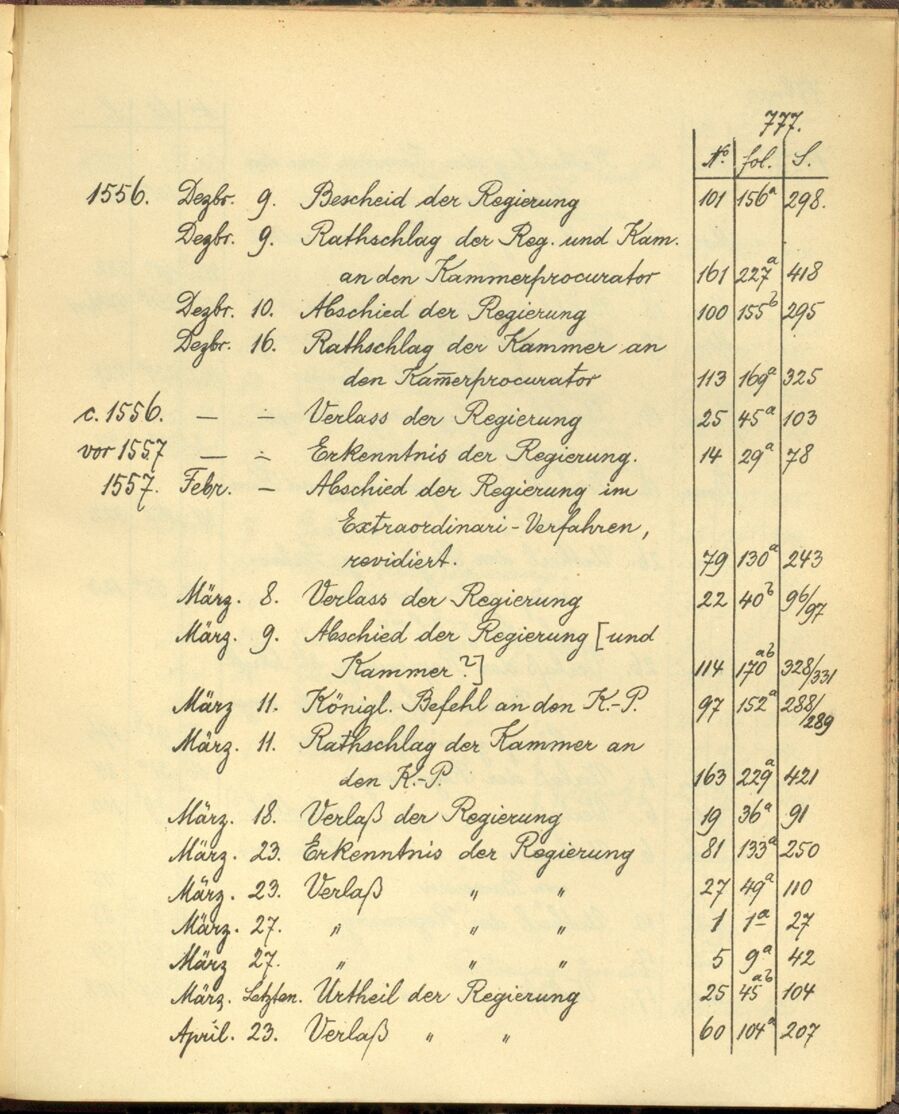 777.
No. fol. S.
1556. Dezbr. 9. Bescheid der Regierung 101 156a 298.
Dezbr. 9. Rathschlag der Reg. und Kam.
an den Kammerprocurator 161 227a 418
Dezbr. 10. Abschied der Regierung 100 155b 295
Dezbr. 16. Rathschlag der Kammer an
den Kam̅erprocurator 113 169a 325
c. 1556. — ÷ Verlass der Regierung 25 45a 103
vor 1557 — ÷ Erkenntnis der Regierung. 14 29a 78
1557. Febr. — Abschied der Regierung im
Extraordinari-Verfahren,
revidiert. 79 130a 243
März. 8. Verlass der Regierung 22 40b 96/97
März. 9. Abschied der Regierung [und
Kammer?] 114 170ab 328/331
März 11. Königl. Befehl an den K.-P. 97 152a 288/289
März. 11. Rathschlag der Kammer an
den K.-P. 163 229a 421
März. 18. Verlaß der Regierung 19 36a 91
März. 23. Erkenntnis der Regierung 81 133a 250
März. 23. Verlaß " " 27 49a 110
März. 27. " " " 1 1a 27
März 27. " " " 5 9a 42
März. Letzten. Urtheil der Regierung 25 45ab 104
April. 23. Verlaß " " 60 104a 207